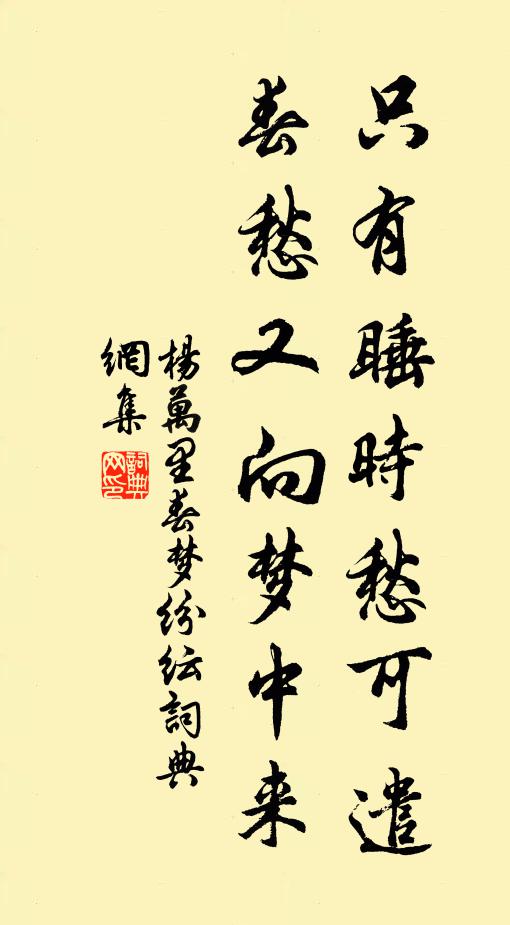 只有睡時愁可遣
春愁又向梦中来
楊萬里春梦紛紜詞典
網集
詞典
网印